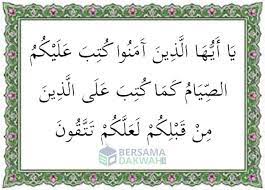 يَا أَيُّهَا الَّذِينَ آمَنُوا كُتِبَ عَلَيْكُمُ
الصِّيَامُ كَمَا كُتِبَ عَلَى الَّذِينَ
مِنْ قَبْلِكُمْ لَعَلَّكُمْ تَتَّقُونَ
BERSAMA
DAKWAH